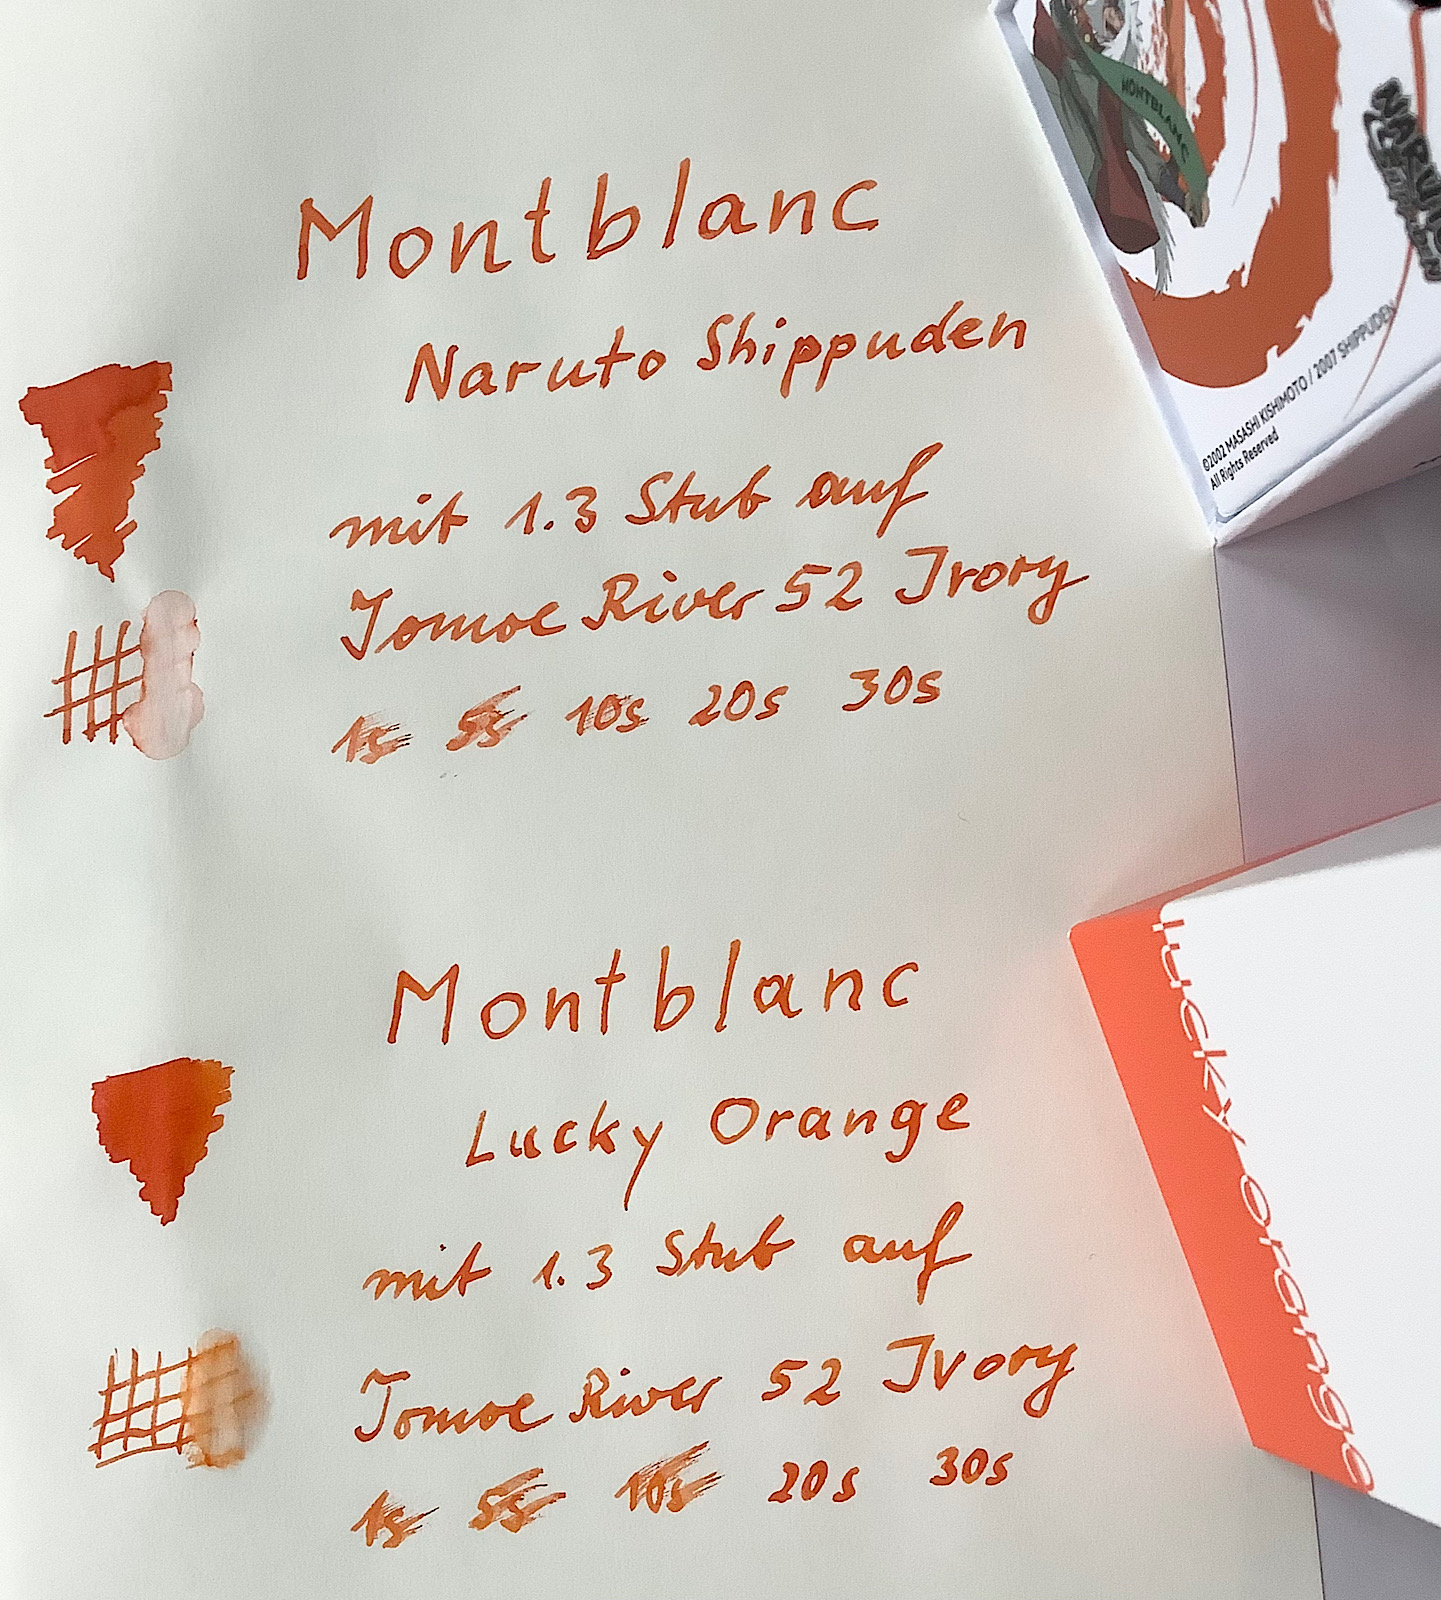 MONTBLANC
NARUTO
SHIPPUDEN
©2002 MASASHI KISHIMOTO / 2007 SHIPPUDEN
All Rights Reserved
Montblanc
Naruto Shippuden
mit 1.3 Stub auf
Tomoe River 52 Ivory
1s 5s 10s 20s 30s
Montblanc
Lucky Orange
mit 1.3 Stub auf
Tomoe River 52 Ivory
1s 5s 10s 20s 30s
lucky orange